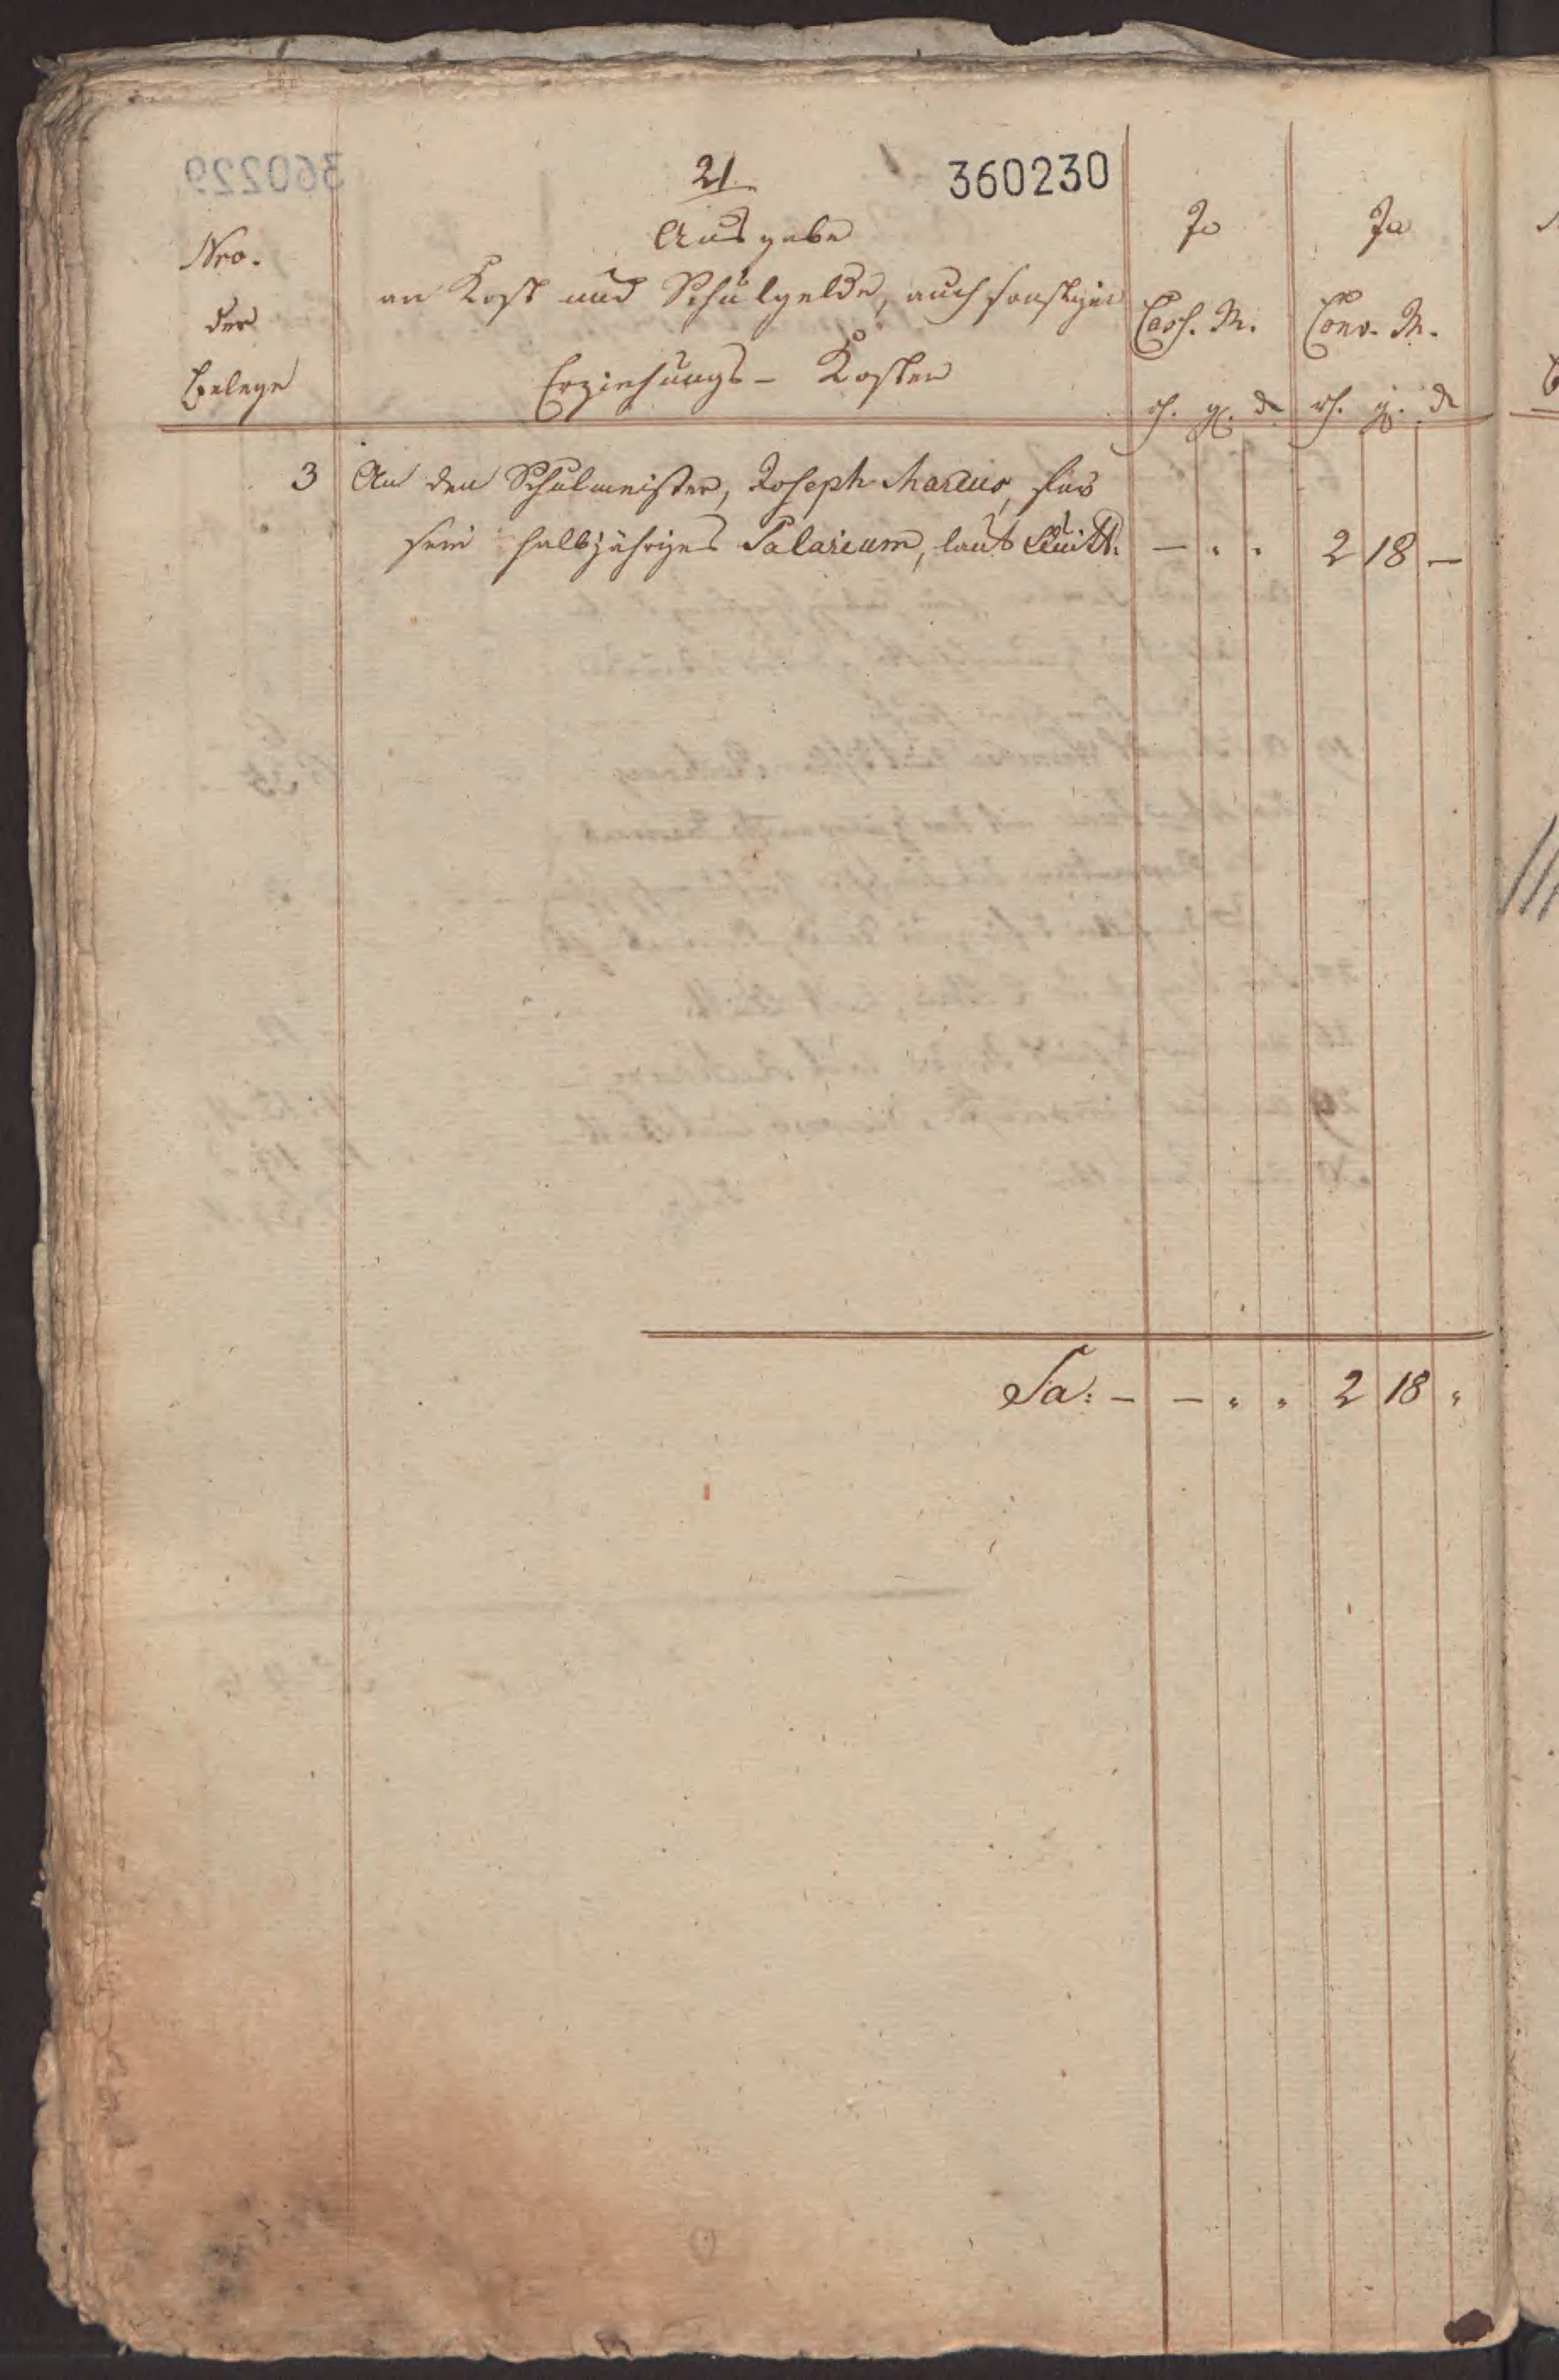 21.
360230
Nro.
der
Belege
Ausgabe
an Kost und Schulgelde, auch sonstigen
Erziehungs- Kosten
In
Cass. M.
In
Conv. M.
rh. gg. d
rh. gg. d
3 An den Schulmeister, Joseph Marcus, für
sein halbjähriges Salarium, laut Quitt. — " " 2 18 —
Sa: — — " " 2 18 "